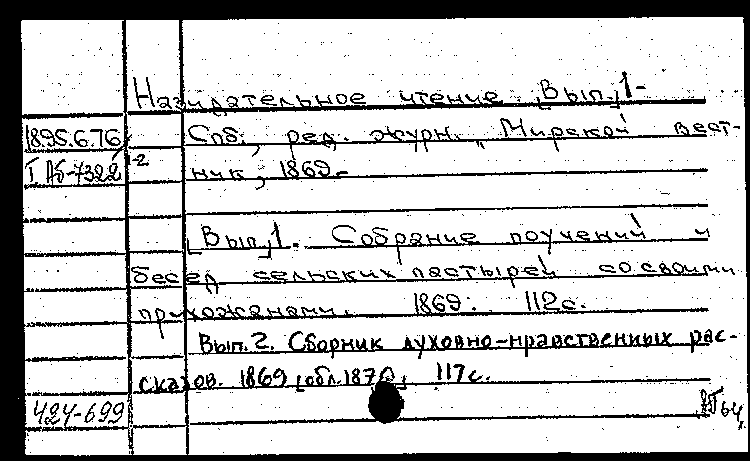 Назидательное чтение. [Вып.] 1-
1895.6.76 Спб., ред. журн. „Мирской вест-
Г АБ-7322/1-2 ник, 1869.-
[Вып.] 1. Собрание поучений и
бесед сельских пастырей со своими
прихожанами. 1869. 112с.
Вып. 2. Сборник духовно-нравственных рас-
сказов. 1869 [обл. 1870]. 117с.
424-699